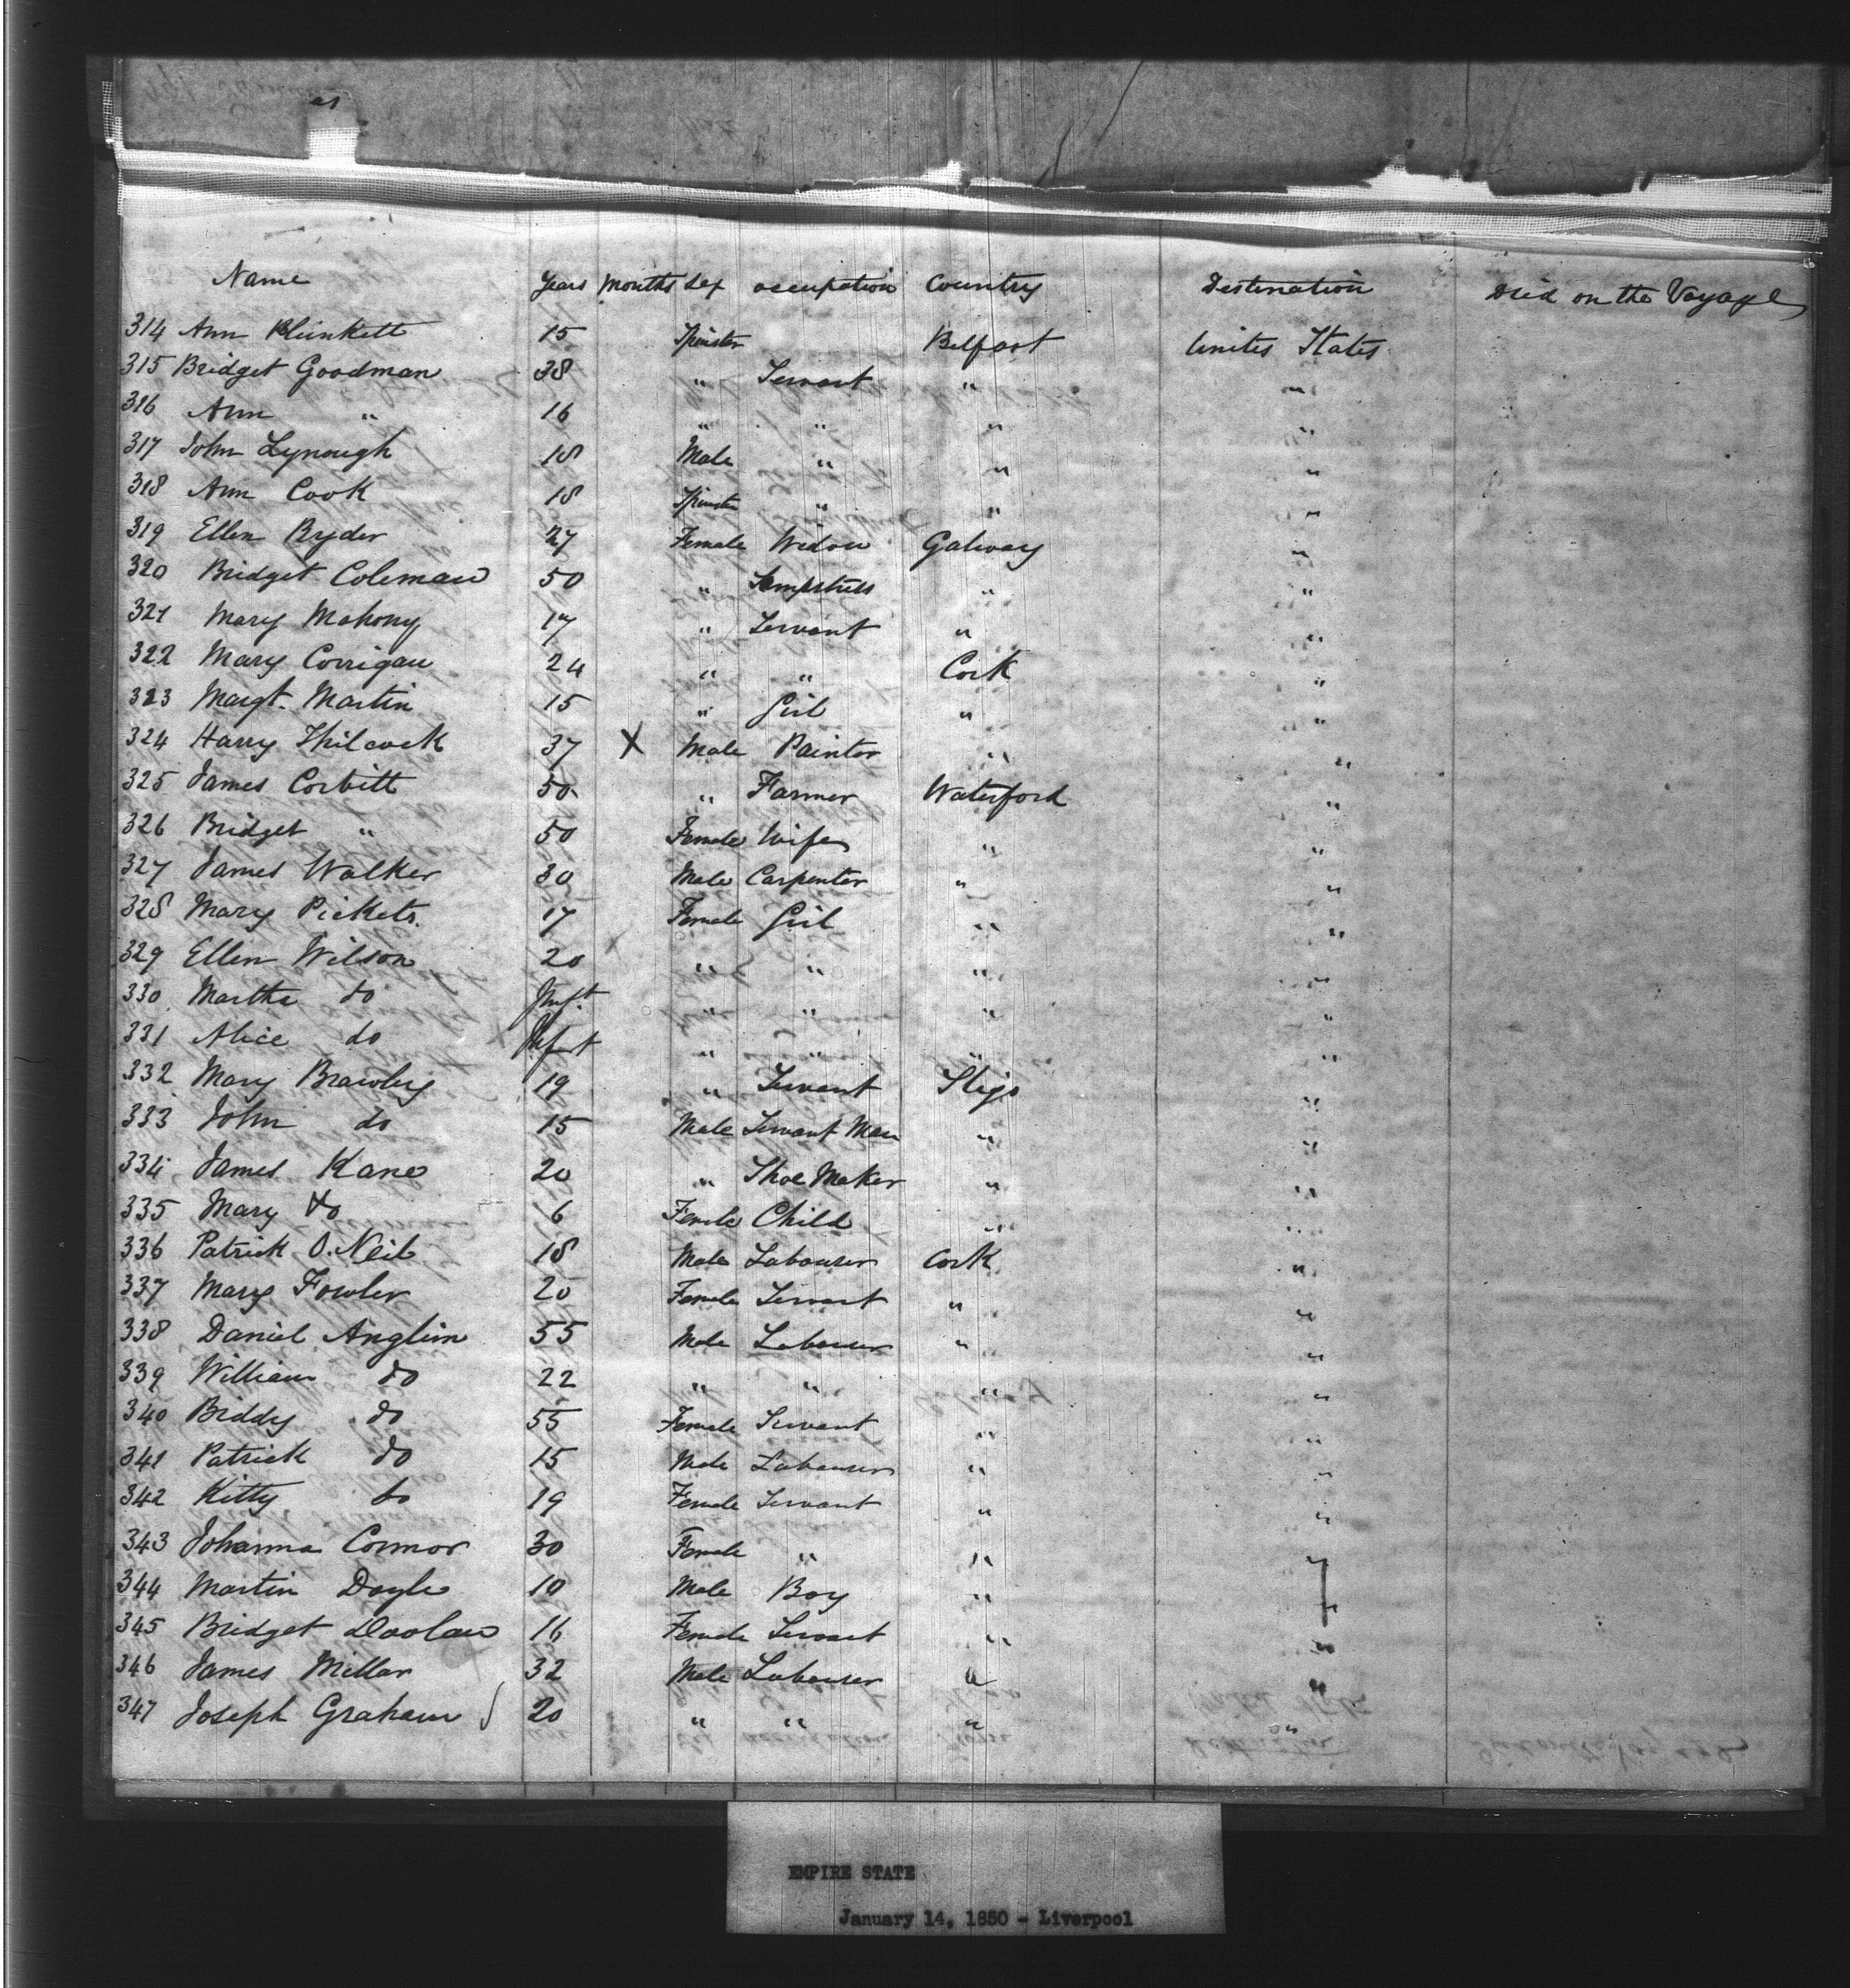 Name Years Months Sex occupation Country Destination Died on the Voyage
314 Ann Plunkett 15 Spinster Belfast Unites States
315 Bridget Goodman 38 " Servant " "
316 Ann " 16 " " " "
317 John Lynough 18 Male " " "
318 Ann Cook 18 Spinster " " "
319 Ellen Ryder 27 Female Widow Galway "
320 Bridget Coleman 50 " Sempstress " "
321 Mary Mahony 17 " Servant " "
322 Mary Corrigan 24 " " Cork "
323 Margt. Martin 15 " Girl " "
324 Harry Thilcock 37 X Male Painter " "
325 James Corbitt 50 " Farmer Waterford "
326 Bridget " 50 Female Wife " "
327 James Walker 30 Male Carpenter " "
328 Mary Pickets 17 Female Girl " "
329 Ellen Wilson 20 " " " "
330 Martha do Inft " " " "
331 Alice do Inft " " " "
332 Mary Brawley 19 " Servant Sligo "
333 John do 15 Male Servant Man " "
334 James Kane 20 " Shoe Maker " "
335 Mary do 6 Female Child " "
336 Patrick O.Neil 18 Male Labourer Cork "
337 Mary Fowler 20 Female Servant " "
338 Daniel Anglim 55 Male Labourer " "
339 William do 22 " " " "
340 Biddy do 55 Female Servant " "
341 Patrick do 15 Male Labourer " "
342 Kitty do 19 Female Servant " "
343 Johanna Connor 30 Female " " "
344 Martin Doyle 10 Male Boy " "
345 Bridget Doolan 16 Female Servant " "
346 James Millar 32 Male Labourer " "
347 Joseph Graham 20 " " " "
EMPIRE STATE
January 14, 1850 - Liverpool